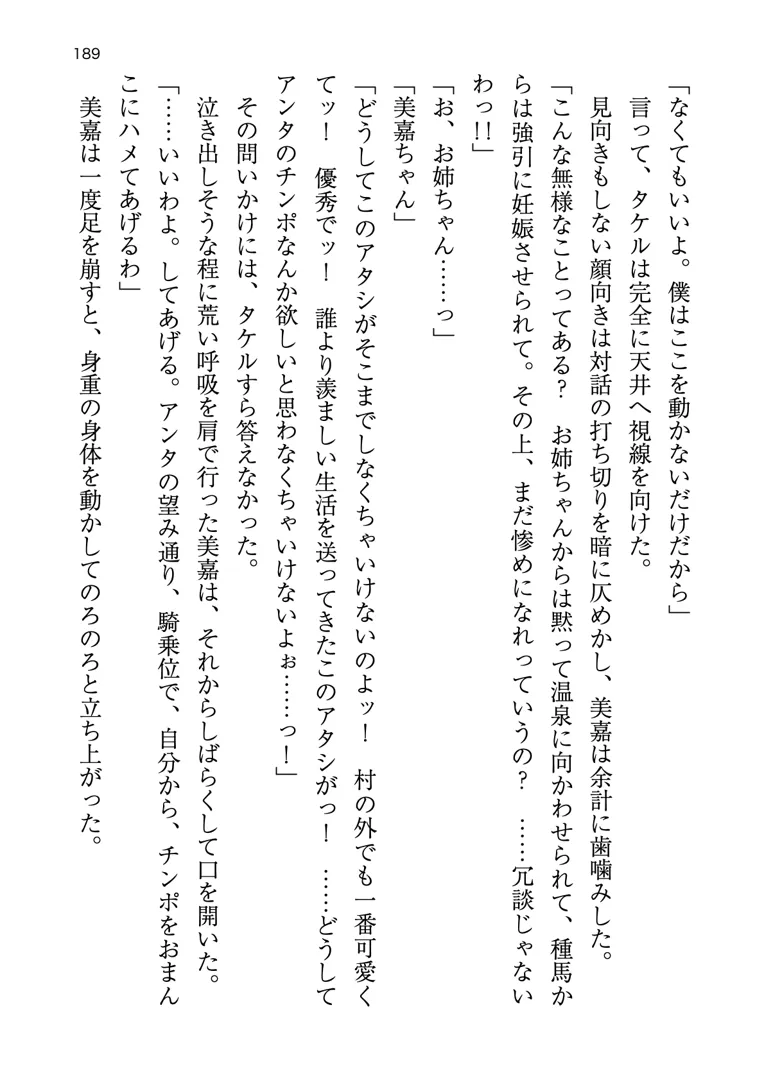 189
「なくてもいいよ。僕はここを動かないだけだから」
言って、タケルは完全に天井へ視線を向けた。
見向きもしない顔向きは対話の打ち切りを暗に仄めかし、美嘉は余計に歯噛みした。
「こんな無様なことってある？　お姉ちゃんからは黙って温泉に向かわせられて、種馬か
らは強引に妊娠させられて。その上、まだ惨めになれっていうの？　……冗談じゃない
わっ!!」
「お、お姉ちゃん……っ」
「美嘉ちゃん」
「どうしてこのアタシがそこまでしなくちゃいけないのよッ！　村の外でも一番可愛く
てッ！　優秀でッ！　誰より羨ましい生活を送ってきたこのアタシがっ！　……どうして
アンタのチンポなんか欲しいと思わなくちゃいけないよぉ……っ！」
その問いかけには、タケルすら答えなかった。
泣き出しそうな程に荒い呼吸を肩で行った美嘉は、それからしばらくして口を開いた。
「……いいわよ。してあげる。アンタの望み通り、騎乗位で、自分から、チンポをおまん
こにハメてあげるわ」
美嘉は一度足を崩すと、身重の身体を動かしてのろのろと立ち上がった。